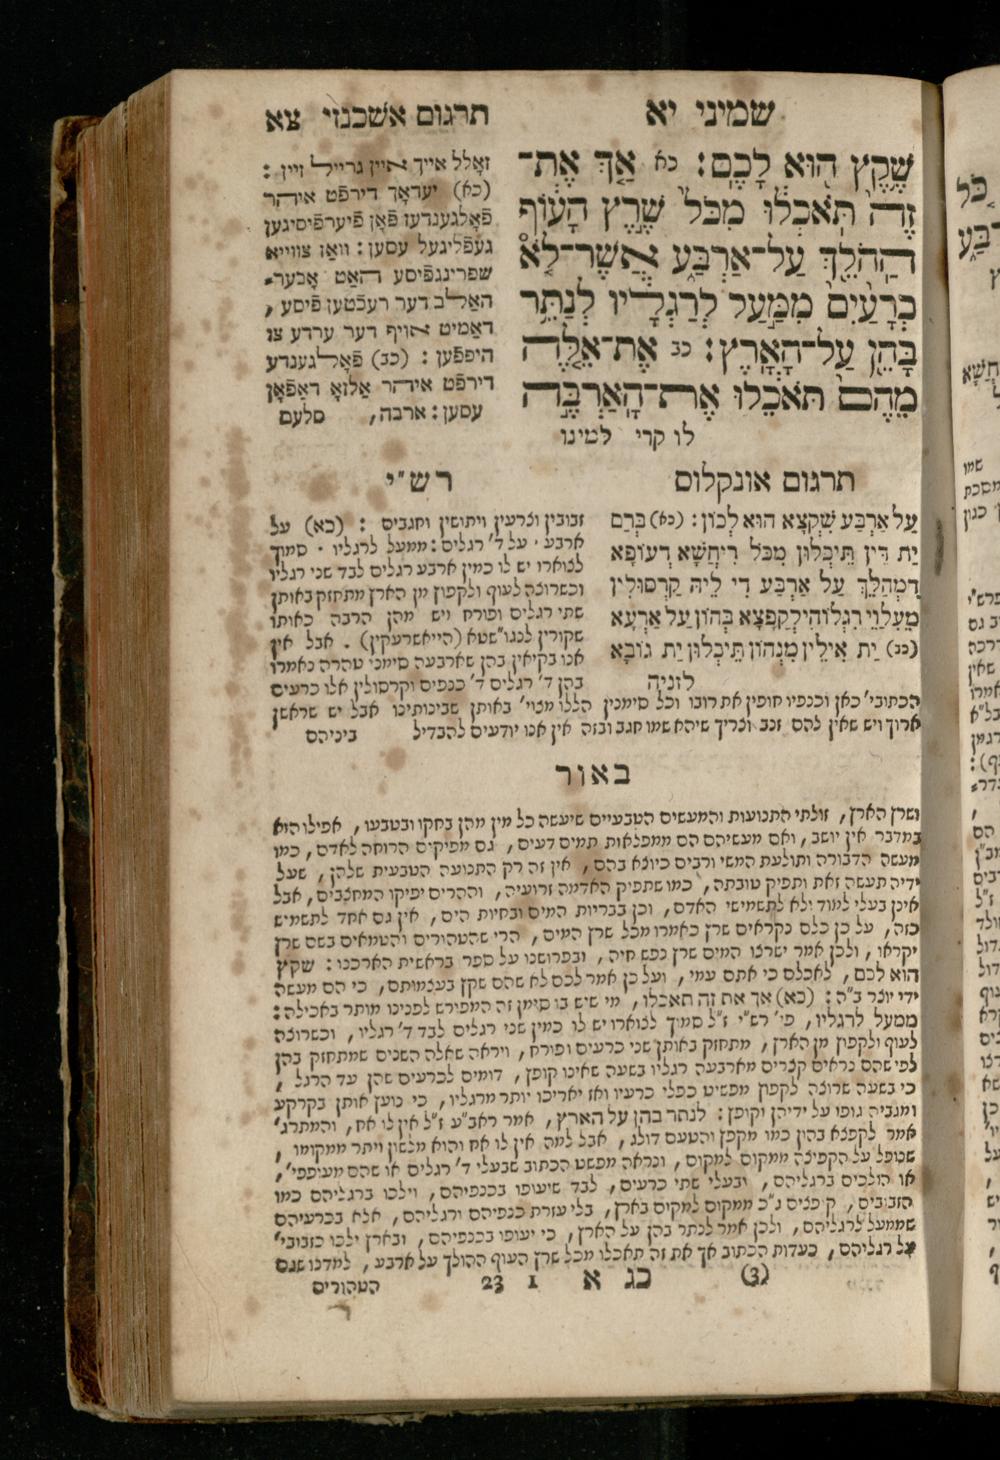 שמיני יא
תרגום אשכנזי צא
שֶׁקֶץ הוּא לָכֶם׃ כא אַךְ אֶת־
זֶה תֹּאכְלוּ מִכֹּל שֶׁרֶץ הָעוֹף
הַהֹלֵךְ עַל־אַרְבַּע אֲשֶׁר־לֹא
כְרָעַיִם מִמַּעַל לְרַגְלָיו לְנַתֵּר
בָּהֵן עַל־הָאָרֶץ׃ כב אֶת־אֵלֶּה
מֵהֶם תֹּאכֵלוּ אֶת־הָאַרְבֶּה
לו קרי למינו
זאָלל אייך איין גרייל זיין :
(כא) יעדאָך דירפֿט איהר
פֿאָלגענדעז פֿאָן פֿיערפֿיסיגען
געפֿליגעל עסען : וואַז צווייא
שפרינגפֿיסע האַט אָבער־
האַלב דער רעכֿטען פֿיסע ,
דאַמיט אויף דער ערדע צו
היפּפֿען : (כב) פֿאָלגענדע
דירפֿט איהר אַלזאָ דאַפֿאָן
עסען : ארבה, סלעם
תרגום אונקלוס
עַל אַרְבַּע שִׁקְצָא הוּא לְכוֹן : (כא) בְּרַם
יַת דֵּין תֵּיכְלוּן מִכֹּל רִיחֲשָׁא דְעוֹפָא
דִמְהַלֵּךְ עַל אַרְבַּע דִי לֵיהּ קַרְסוּלִין
מֵעִלָּוֵי רִגְלוֹהִי לְקַפָּצָא בְּהוֹן עַל אַרְעָא
(כב) יַת אִילֵין מִנְּהוֹן תֵּיכְלוּן יַת גּוֹבָא
לזניה
רש״י
זבובין וצרעין ויתושין וחגבים : (כא) על
ארבע · על ד' רגלים : ממעל לרגליו · סמוך
לצוארו יש לו כמין ארבע רגלים לבד שני רגליו
וכשרוצה לעוף ולקפוץ מן הארץ מתחזק באותן
שתי רגלים ופורח ויש מהן הרבה כאותו
שקורין לנגו״שטא (הייאשרעקין) . אבל אין
אנו בקיאין בהן שארבעה סימני טהרה נאמרו
בהן ד' רגלים ד' כנפים וקרסולין אלו כרעים
הכתובי' כאן וכנפיו חופין את רובו וכל סימנין הללו מצוי' באותן שבינותינו אבל יש שראשן
ארוך ויש שאין להם זנב וצריך שיהא שמו חגב ובזה אין אנו יודעים להבדיל ביניהם
באור
ושרץ הארץ , זולתי התנועות והמעשים הטבעיים שיעשה כל מין מהן בחקו ובטבעו , אפילו הוא
במדבר אין יושב, ואם מעשיהם הם ממפלאות תמים דעים, גם מפיקים הרוחה לאדם, כמו
מעשה הדבורה ותולעת המשי ורבים כיוצא בהם , אין זה רק התנועה הטבעית שלהן , שעל
ידיה תעשה זאת ותפיק טובתה, כמו שתפיק האדמה זרועיה, וההרים יפיקו המחצבים, אבל
אינן בעלי למוד ולא לתשמישי האדם, וכן בבריות המים ובחיות הים, אין גם אחד לתשמיש
כזה, על כן כלם נקראים שרץ כאמרו מכל שרץ המים, הרי שהטהורים והטמאים בשם שרץ
יקראו, ולכן אמר ישרצו המים שרץ נפש חיה, ובפרושנו על ספר בראשית הארכנו : שקץ
הוא לכם, לאכלם כי אתם עמי, ועל כן אמר לכם לא שהם שקץ בעצמותם, כי הם מעשה
ידי יוצר ב״ה : (כא) אך את זה תאכלו, מי שיש בו סימן זה המפורש לפנינו מותר באכילה :
ממעל לרגליו, פי' רש״י ז״ל סמוך לצוארו יש לו כמין שני רגלים לבד ד' רגליו, וכשרוצה
לעוף ולקפוץ מן הארץ, מתחזק באותן שני כרעים ופורח, ויראה שאלה השנים שמתחזק בהן
לפי שהם נראים קצרים מארבעה רגליו בשעה שאינו קופץ, דומים לכרעים שהן עד הרגל ,
כי בשעה שרוצה לקפוץ מפשיט כפלי כרעיו ואז יאריכו יותר מרגליו, כי נועץ אותן בקרקע
ומגביה גופו על ידיהן וקופץ : לנתר בהן על הארץ, אמר ראב״ע ז״ל אין לו אח, והמתרג'
אמר לקפצא בהון כמו מקפץ והטעם דולג, אבל למה אין לו אח והוא מלשון ויתר ממקומו ,
שנופל על הקפיצה ממקום למקום, ונראה מפשט הכתוב שבעלי ד' רגלים או שהם מעיפפי',
או הולכים ברגליהם, ובעלי שתי כרעים, לבד שיעופו בכנפיהם, וילכו ברגליהם כמו
הזבובים, קופצים ג״כ ממקום למקום בארץ, בלי עזרת כנפיהם ורגליהם, אלא בכרעיהם
שממעל לרגליהם, ולכן אמר לנתר בהן על הארץ, כי יעופו בכנפיהם, ובארץ ילכו כזבובי'
על רגליהם, כעדות הכתוב אך את זה תאכלו מכל שרץ העוף ההולך על ארבע, למדנו שגם
(3) כג א 1 23 הטהורים